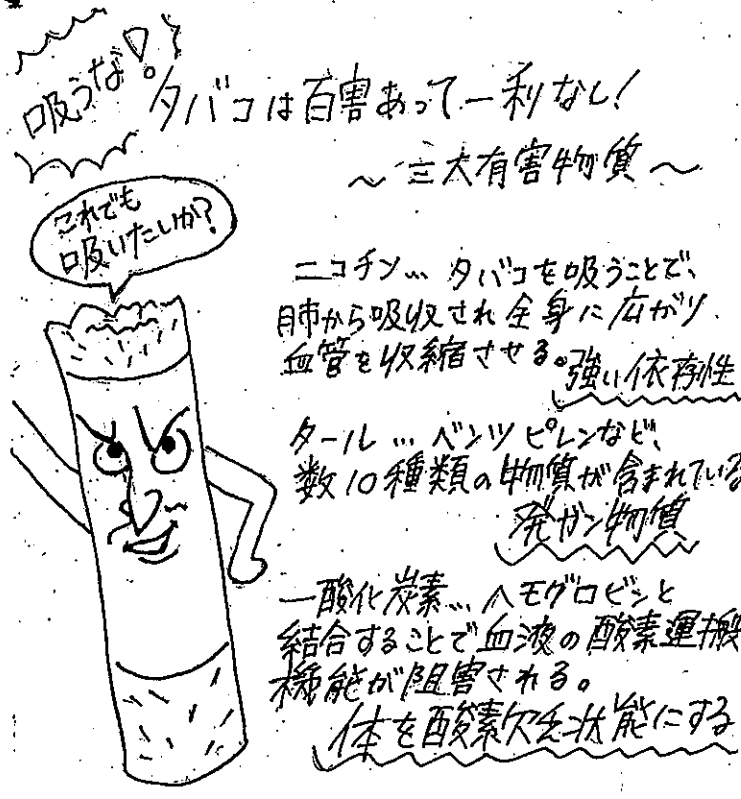 吸うな!
タバコは百害あって一利なし!
~三大有害物質~
これでも
吸いたいか?
ニコチン… タバコを吸うことで、
肺から吸収され全身に広がり
血管を収縮させる。強い依存性
タール… ベンツピレンなど、
数10種類の物質が含まれている
発ガン物質
一酸化炭素… ヘモグロビンと
結合することで血液の酸素運搬
機能が阻害される。
体を酸素欠乏状態にする